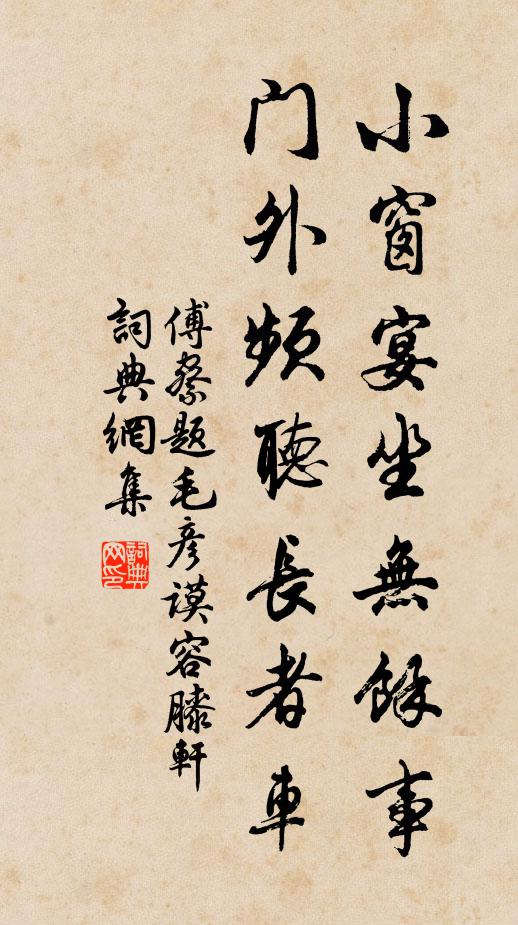 小窗宴坐無餘事
門外頻聽長者車
傅察題毛彥謨容膝軒
詞典網集
詞典网印